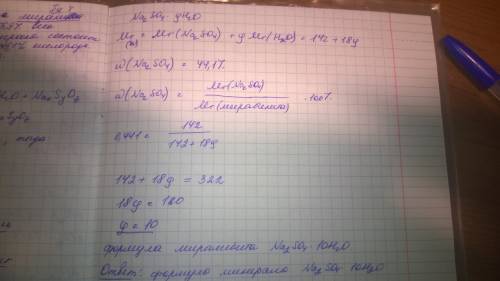 мирабил
% всей
состоит
% кислорода
H₂O + Na₂SyOz
тогда
Na₂SO₄ · yH₂O
Mr = Mr(Na₂SO₄) + y Mr(H₂O) = 142 + 18y
(м)
ω(Na₂SO₄) = 44,1%
ω(Na₂SO₄) = Mr(Na₂SO₄) / Mr(мирабилита) · 100%
0,441 = 142 / 142 + 18y
142 + 18y = 322
18y = 180
y = 10
формула мирабилита Na₂SO₄ · 10H₂O
Ответ: формула минерала Na₂SO₄ · 10H₂O